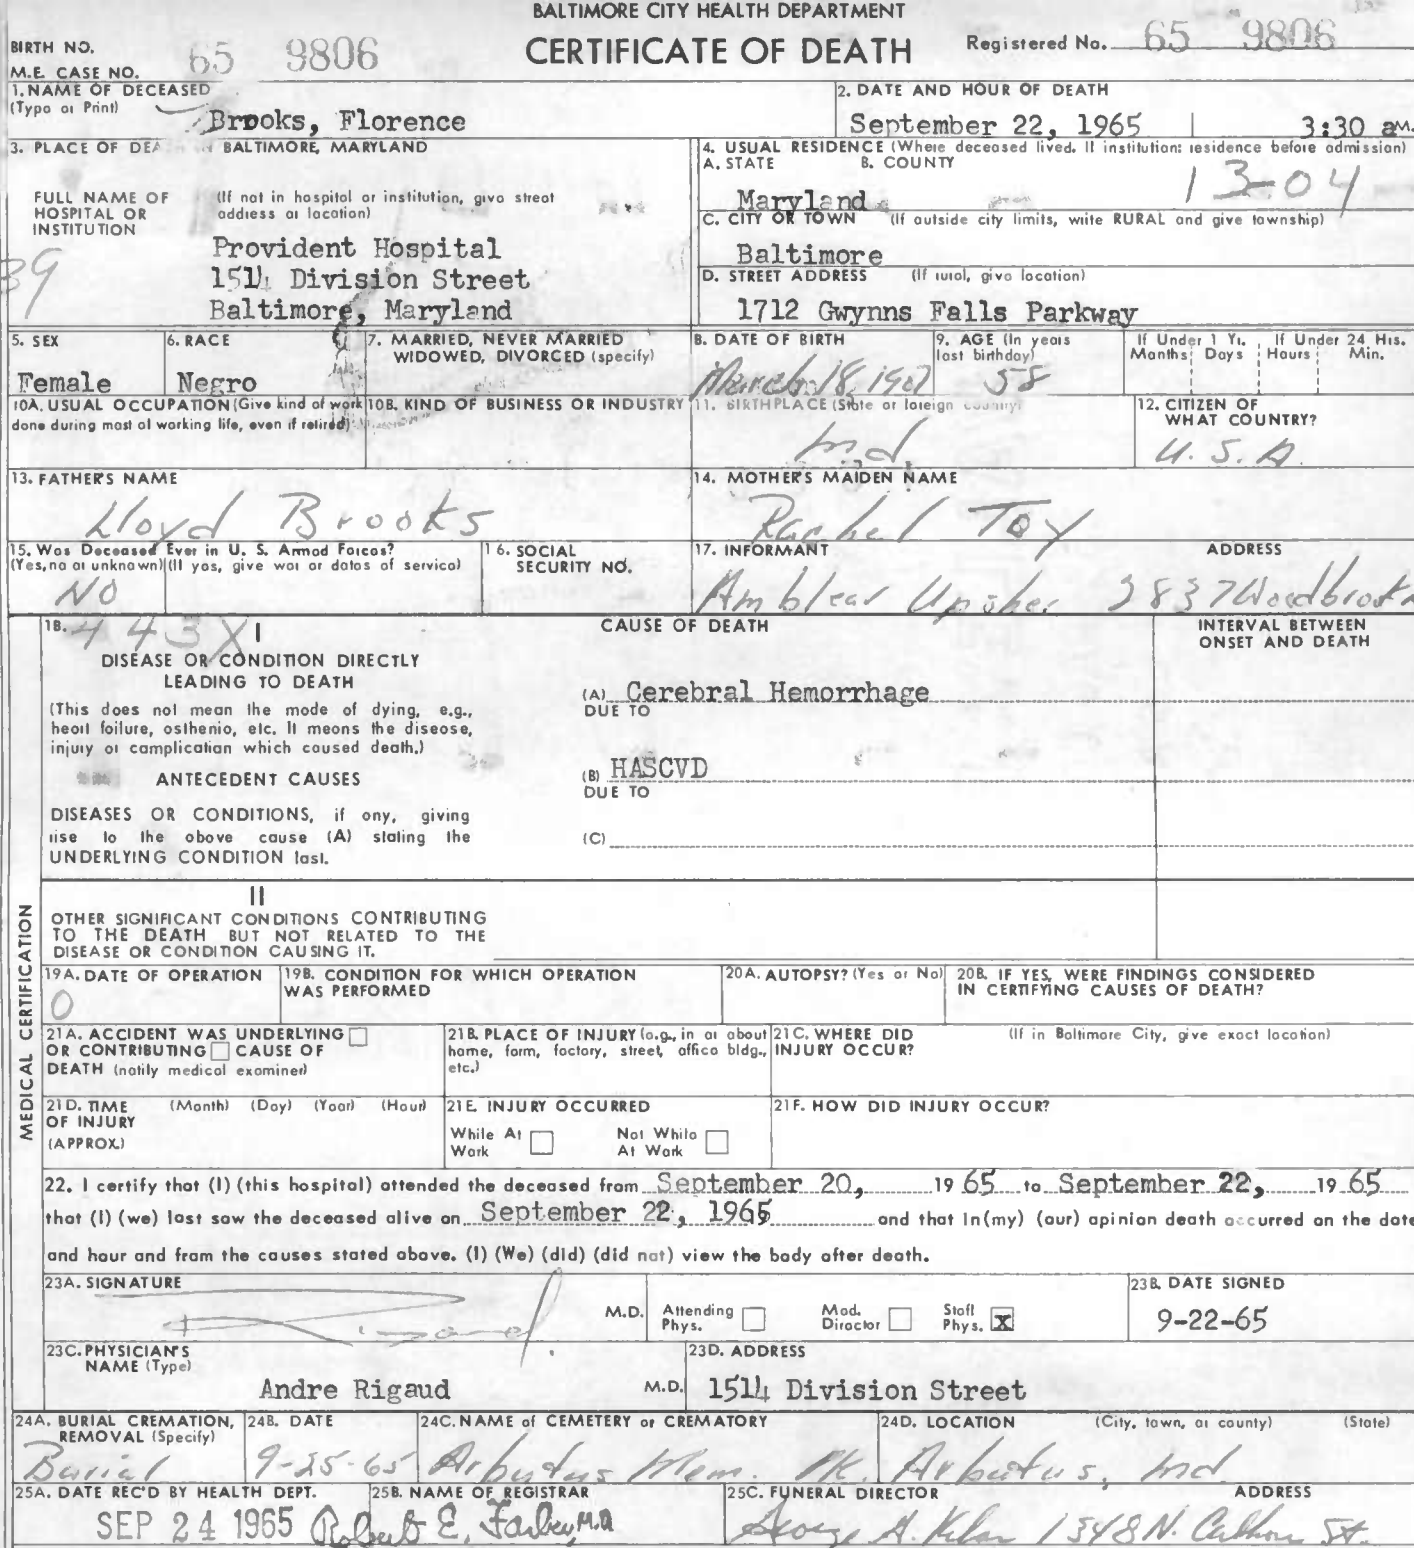 BALTIMORE CITY HEALTH DEPARTMENT
CERTIFICATE OF DEATH
BIRTH NO. 65 9806
Registered No. 65 9806
M.E. CASE NO.
1. NAME OF DECEASED
(Type or Print)
Brooks, Florence
2. DATE AND HOUR OF DEATH
September 22, 1965 3:30 aM.
3. PLACE OF DEATH IN BALTIMORE, MARYLAND
FULL NAME OF HOSPITAL OR INSTITUTION
(If not in hospital or institution, give street address or location)
39
Provident Hospital
1514 Division Street
Baltimore, Maryland
4. USUAL RESIDENCE (Where deceased lived. If institution: residence before admission)
A. STATE B. COUNTY
Maryland 13-04
C. CITY OR TOWN (If outside city limits, write RURAL and give township)
Baltimore
D. STREET ADDRESS (If rural, give location)
1712 Gwynns Falls Parkway
5. SEX
Female
6. RACE
Negro
7. MARRIED, NEVER MARRIED
WIDOWED, DIVORCED (specify)
8. DATE OF BIRTH
March 18, 1907
9. AGE (In years last birthday)
58
If Under 1 Yr. If Under 24 Hrs.
Months Days Hours Min.
10A. USUAL OCCUPATION (Give kind of work done during most of working life, even if retired)
10B. KIND OF BUSINESS OR INDUSTRY
11. BIRTHPLACE (State or foreign country)
Md.
12. CITIZEN OF WHAT COUNTRY?
U. S. A.
13. FATHER'S NAME
Lloyd Brooks
14. MOTHER'S MAIDEN NAME
Rachel Toy
15. Was Deceased Ever in U. S. Armed Forces?
(Yes, no or unknown) (If yes, give war or dates of service)
NO
16. SOCIAL SECURITY NO.
17. INFORMANT ADDRESS
Upsher 3837 Woodbrook
18. 443X I
DISEASE OR CONDITION DIRECTLY
LEADING TO DEATH
(This does not mean the mode of dying, e.g.,
heart failure, asthenia, etc. It means the disease,
injury or complication which caused death.)
ANTECEDENT CAUSES
DISEASES OR CONDITIONS, if any, giving
rise to the above cause (A) stating the
UNDERLYING CONDITION last.
CAUSE OF DEATH
(A) Cerebral Hemorrhage
DUE TO
(B) HASCVD
DUE TO
(C)
INTERVAL BETWEEN
ONSET AND DEATH
II
OTHER SIGNIFICANT CONDITIONS CONTRIBUTING
TO THE DEATH BUT NOT RELATED TO THE
DISEASE OR CONDITION CAUSING IT.
MEDICAL CERTIFICATION
19A. DATE OF OPERATION
0
19B. CONDITION FOR WHICH OPERATION
WAS PERFORMED
20A. AUTOPSY? (Yes or No)
20B. IF YES, WERE FINDINGS CONSIDERED
IN CERTIFYING CAUSES OF DEATH?
21A. ACCIDENT WAS UNDERLYING
OR CONTRIBUTING CAUSE OF
DEATH (notify medical examiner)
21B. PLACE OF INJURY (e.g., in or about
home, farm, factory, street, office bldg.,
etc.)
21C. WHERE DID (If in Baltimore City, give exact location)
INJURY OCCUR?
21D. TIME (Month) (Day) (Year) (Hour)
OF INJURY
(APPROX.)
21E. INJURY OCCURRED
While At Work Not While At Work
21F. HOW DID INJURY OCCUR?
22. I certify that (I) (this hospital) attended the deceased from September 20, 19 65 to September 22, 19 65
that (I) (we) last saw the deceased alive on September 22, 1965 and that in (my) (our) opinion death occurred on the date
and hour and from the causes stated above. (I) (We) (did) (did not) view the body after death.
23A. SIGNATURE
M.D. Attending Phys. Med. Director Staff Phys. X
23B. DATE SIGNED
9-22-65
23C. PHYSICIAN'S
NAME (Type)
Andre Rigaud M.D.
23D. ADDRESS
1514 Division Street
24A. BURIAL CREMATION,
REMOVAL (Specify)
Burial
24B. DATE
9-25-65
24C. NAME of CEMETERY or CREMATORY
Arbutus Mem. Pk.
24D. LOCATION (City, town, or county) (State)
Arbutus, Md
25A. DATE REC'D BY HEALTH DEPT.
SEP 24 1965
25B. NAME OF REGISTRAR
Robert E. Farber, M.D.
25C. FUNERAL DIRECTOR ADDRESS
George H. 1348 N. Calhoun St.